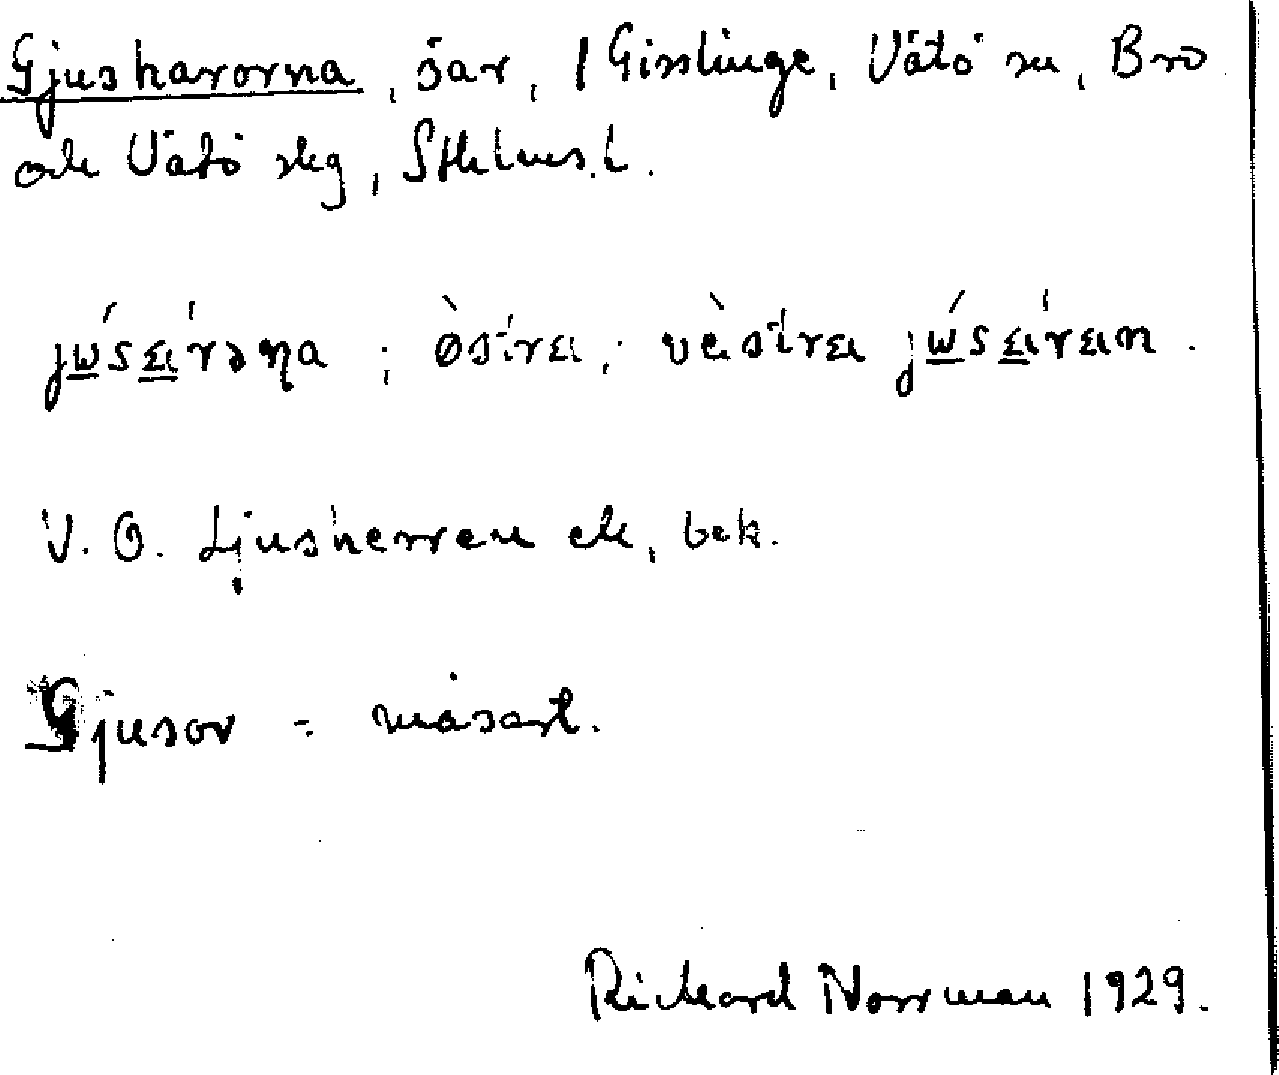 Gjusharorna, öar, i Gisslinge, Vätö sn, Bro
och Vätö skg, Sthlms.l.
jώsæ̀rəɳa ; òsṫræ ; væ̀sṫræ jώsæ̀ræn.
V. O. Ljusherren ek, bek.
Gjusor = måsart.
Richard Norrman 1929.